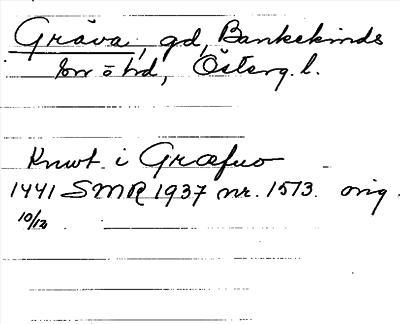 Gråva, gd, Bankekinds
sn o hd, Österg. l.
Knut i Græfuo
1441 SMR 1937 nr. 1513. orig.
10/12